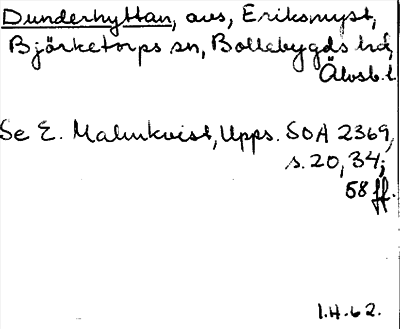 Dunderhyttan, avs, Eriksmyst,
Björketorps sn, Bollebygds hd,
Älvsb. l.
Se E. Malmkvist, Upps. SOA 2369,
s. 20, 34;
58 ff.
I.H.62.